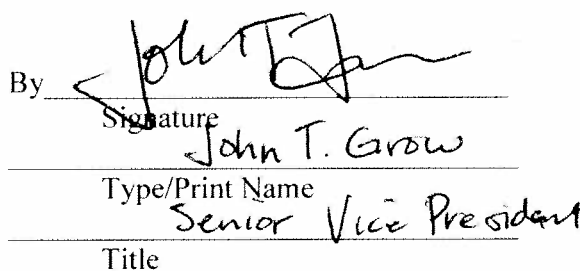 By John T. Grow
Signature
John T. Grow
Type/Print Name
Senior Vice President
Title